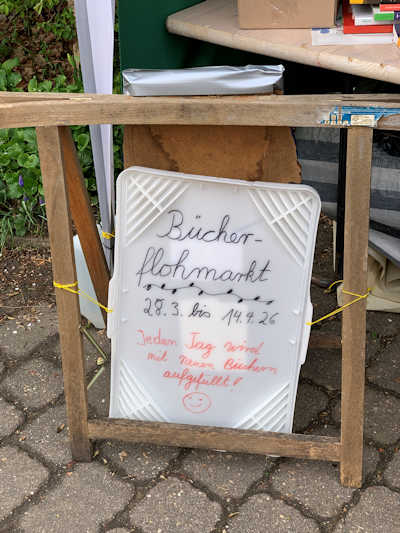 Bücher-
flohmarkt
28.3. bis 14.4.26
Jeden Tag wird
mit neuen Büchern
aufgefüllt!